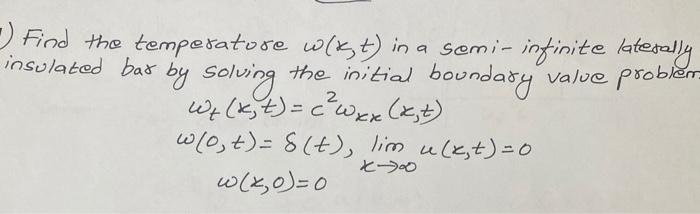 ) Find the temperature w(x,t) in a semi-infinite laterally
insulated bar by solving the initial boundary value problem
w_t(x,t) = c²w_xx(x,t)
w(0,t) = δ(t), lim_{x→∞} u(x,t) = 0
w(x,0) = 0